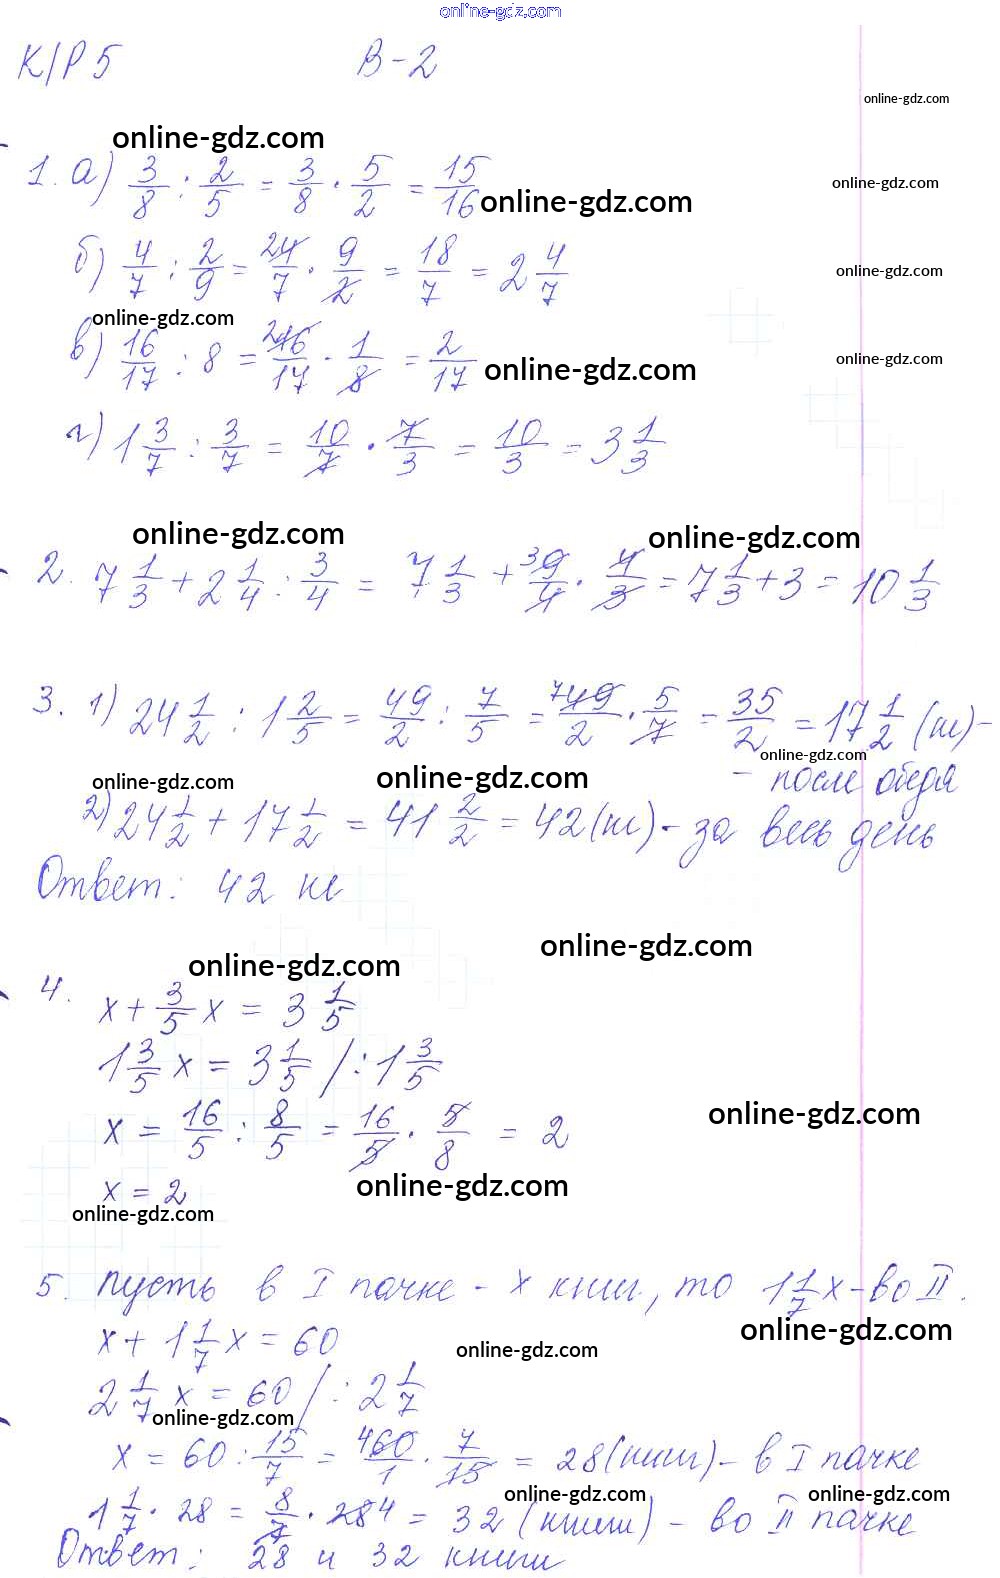 online-gdz.com
К/Р 5 В-2
online-gdz.com
online-gdz.com
1. а) 3/8 : 2/5 = 3/8 · 5/2 = 15/16
online-gdz.com
online-gdz.com
б) 4/7 : 2/9 = 24/7 · 9/2 = 18/7 = 2 4/7
online-gdz.com
online-gdz.com
в) 16/17 : 8 = 216/17 · 1/8 = 2/17
online-gdz.com
online-gdz.com
г) 1 3/7 : 3/7 = 10/7 · 7/3 = 10/3 = 3 1/3
online-gdz.com
online-gdz.com
2. 7 1/3 + 2 1/4 : 3/4 = 7 1/3 + 39/4 · 4/3 = 7 1/3 + 3 = 10 1/3
3. 1) 24 1/2 : 1 2/5 = 49/2 : 7/5 = 749/2 · 5/7 = 35/2 = 17 1/2 (кг) -
online-gdz.com
- после обеда
online-gdz.com
online-gdz.com
2) 24 1/2 + 17 1/2 = 41 2/2 = 42 (кг) - за весь день
Ответ: 42 кг
online-gdz.com
online-gdz.com
4. x + 3/5 x = 3 1/5
1 3/5 x = 3 1/5 / : 1 3/5
online-gdz.com
x = 16/5 : 8/5 = 16/5 · 5/8 = 2
online-gdz.com
x = 2
online-gdz.com
5. Пусть в I пачке - x книг, то 1 1/7 x - во II.
online-gdz.com
x + 1 1/7 x = 60
online-gdz.com
2 1/7 x = 60 / : 2 1/7
online-gdz.com
x = 60 : 15/7 = 460/1 · 7/15 = 28 (книг) - в I пачке
online-gdz.com
online-gdz.com
1 1/7 · 28 = 8/7 · 284 = 32 (книги) - во II пачке
Ответ: 28 и 32 книги